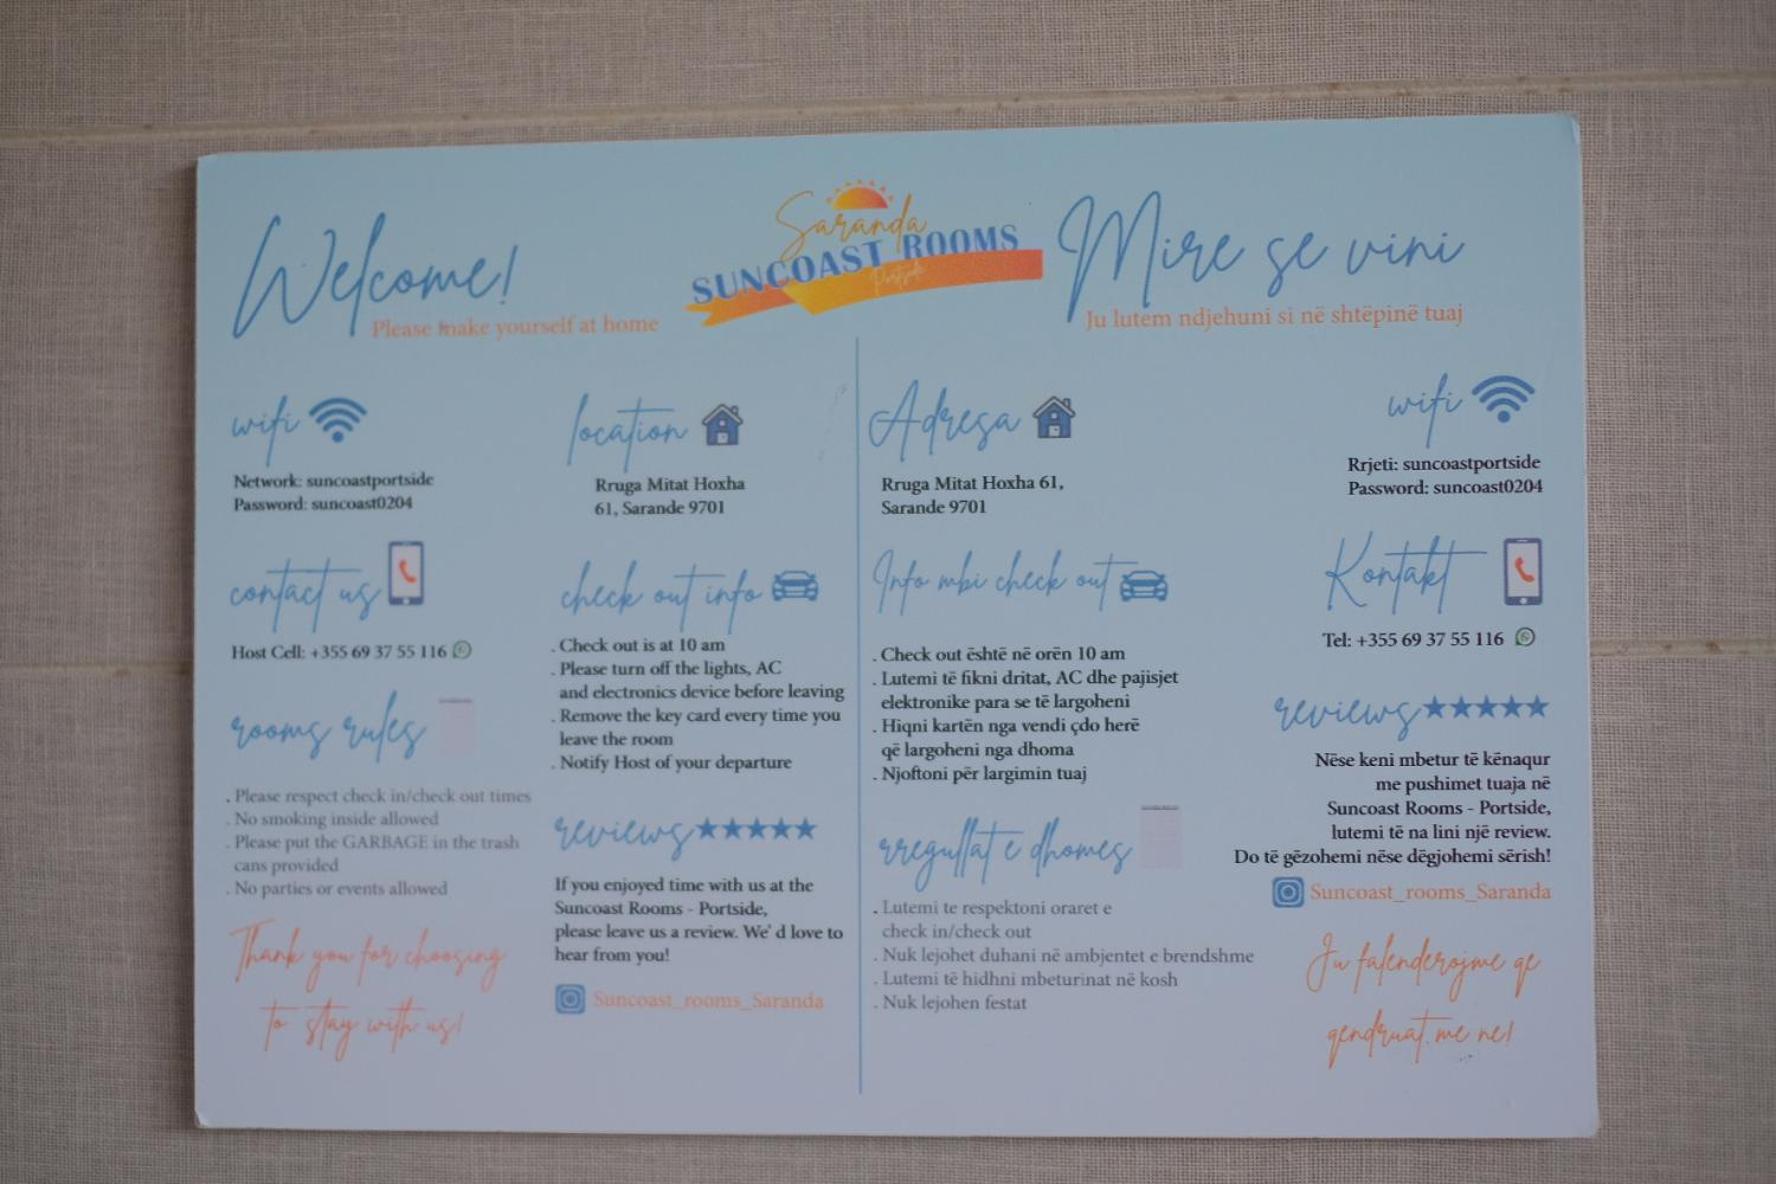 Saranda
SUNCOAST ROOMS
Portside
Welcome!
Please make yourself at home
wifi
Network: suncoastportside
Password: suncoast0204
contact us
Host Cell: +355 69 37 55 116
rooms rules
. Please respect check in/check out times
. No smoking inside allowed
. Please put the GARBAGE in the trash
cans provided
. No parties or events allowed
Thank you for choosing
to stay with us!
location
Rruga Mitat Hoxha
61, Sarande 9701
check out info
. Check out is at 10 am
. Please turn off the lights, AC
and electronics device before leaving
. Remove the key card every time you
leave the room
. Notify Host of your departure
reviews
If you enjoyed time with us at the
Suncoast Rooms - Portside,
please leave us a review. We' d love to
hear from you!
Suncoast_rooms_Saranda
Mire se vini
Ju lutem ndjehuni si në shtëpinë tuaj
Adresa
Rruga Mitat Hoxha 61,
Sarande 9701
Info mbi check out
. Check out është në orën 10 am
. Lutemi të fikni dritat, AC dhe pajisjet
elektronike para se të largoheni
. Hiqni kartën nga vendi çdo herë
që largoheni nga dhoma
. Njoftoni për largimin tuaj
rregullat e dhomes
. Lutemi te respektoni oraret e
check in/check out
. Nuk lejohet duhani në ambjentet e brendshme
. Lutemi të hidhni mbeturinat në kosh
. Nuk lejohen festat
wifi
Rrjeti: suncoastportside
Password: suncoast0204
Kontakt
Tel: +355 69 37 55 116
reviews
Nëse keni mbetur të kënaqur
me pushimet tuaja në
Suncoast Rooms - Portside,
lutemi të na lini një review.
Do të gëzohemi nëse dëgjohemi sërish!
Suncoast_rooms_Saranda
Ju falenderojme qe
qendruat me ne!